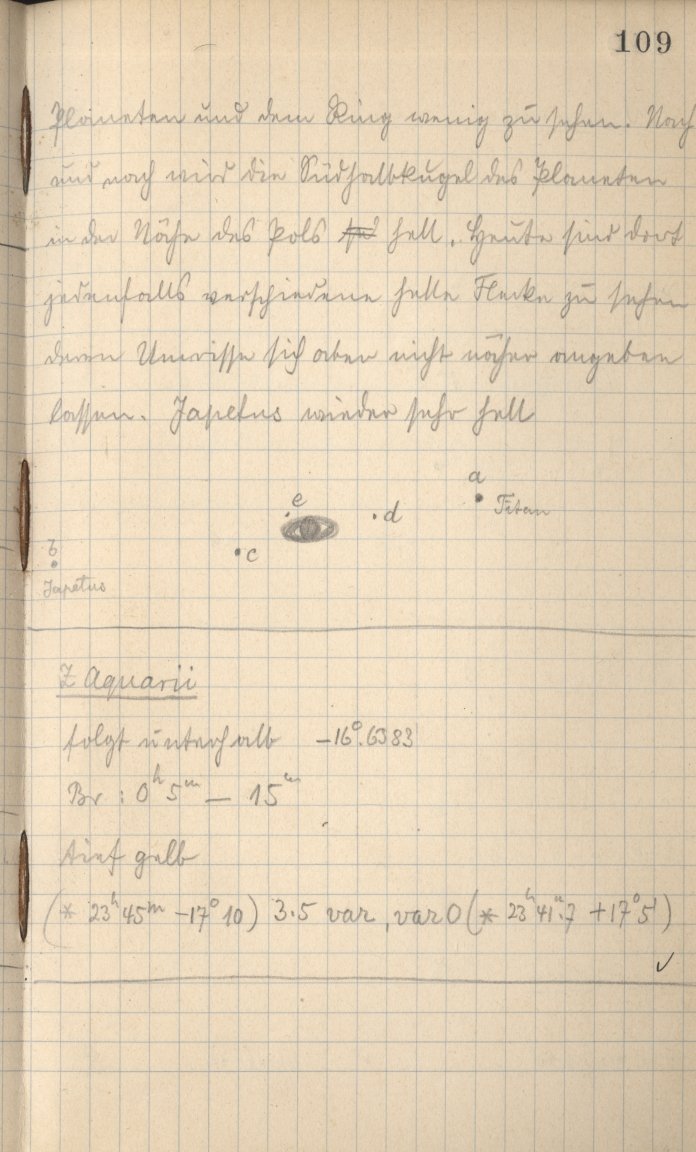 109
Planeten und dem Ring wenig zu sehen. Nach
und nach wird die Südhalbkugel des Planeten
in der Nähe des Pols hell. Heute sind dort
jedenfalls verschiedene helle Flecke zu sehen
deren Umrisse sich aber nicht näher angeben
lassen. Japetus wieder sehr hell
a
Titan
e
d
c
b
Japetus
Z Aquarii
folgt unterhalb -16°.6383
Br : 0h 5m - 15m
tief gelb
(* 23h 45m -17° 10) 3.5 var, var 0 (* 23h 41m.7 +17° 5')
✓